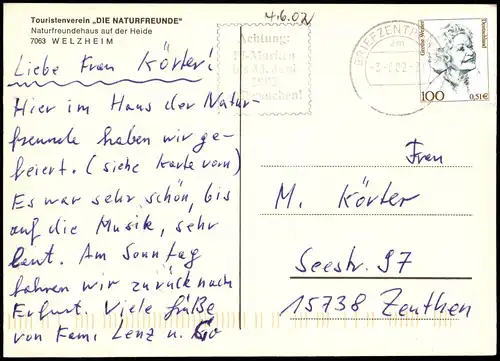 Touristenverein „DIE NATURFREUNDE"
Naturfreundehaus auf der Heide
7063 WELZHEIM
4.6.02
Liebe Frau Körter!
Hier im Haus der Natur-
freunde haben wir ge-
feiert. (siehe Karte vorn)
Es war sehr schön, bis
auf die Musik, sehr
laut. Am Sonntag
fahren wir zurück nach
Erfurt. Viele Grüße
von Fam. Lenz u.
Achtung:
Pf-Marken
bis
BRIEFZENTR
Grethe Weiser
Deutschland
100 0,51€
Frau
M. Körter
Seestr. 97
15738 Zeuthen